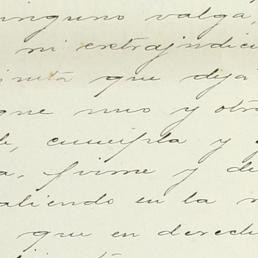 ninguno valga,
ni extrajudici
que deja
que uno y otro
cumpla y
firme y de
aliendo en la
que en derech